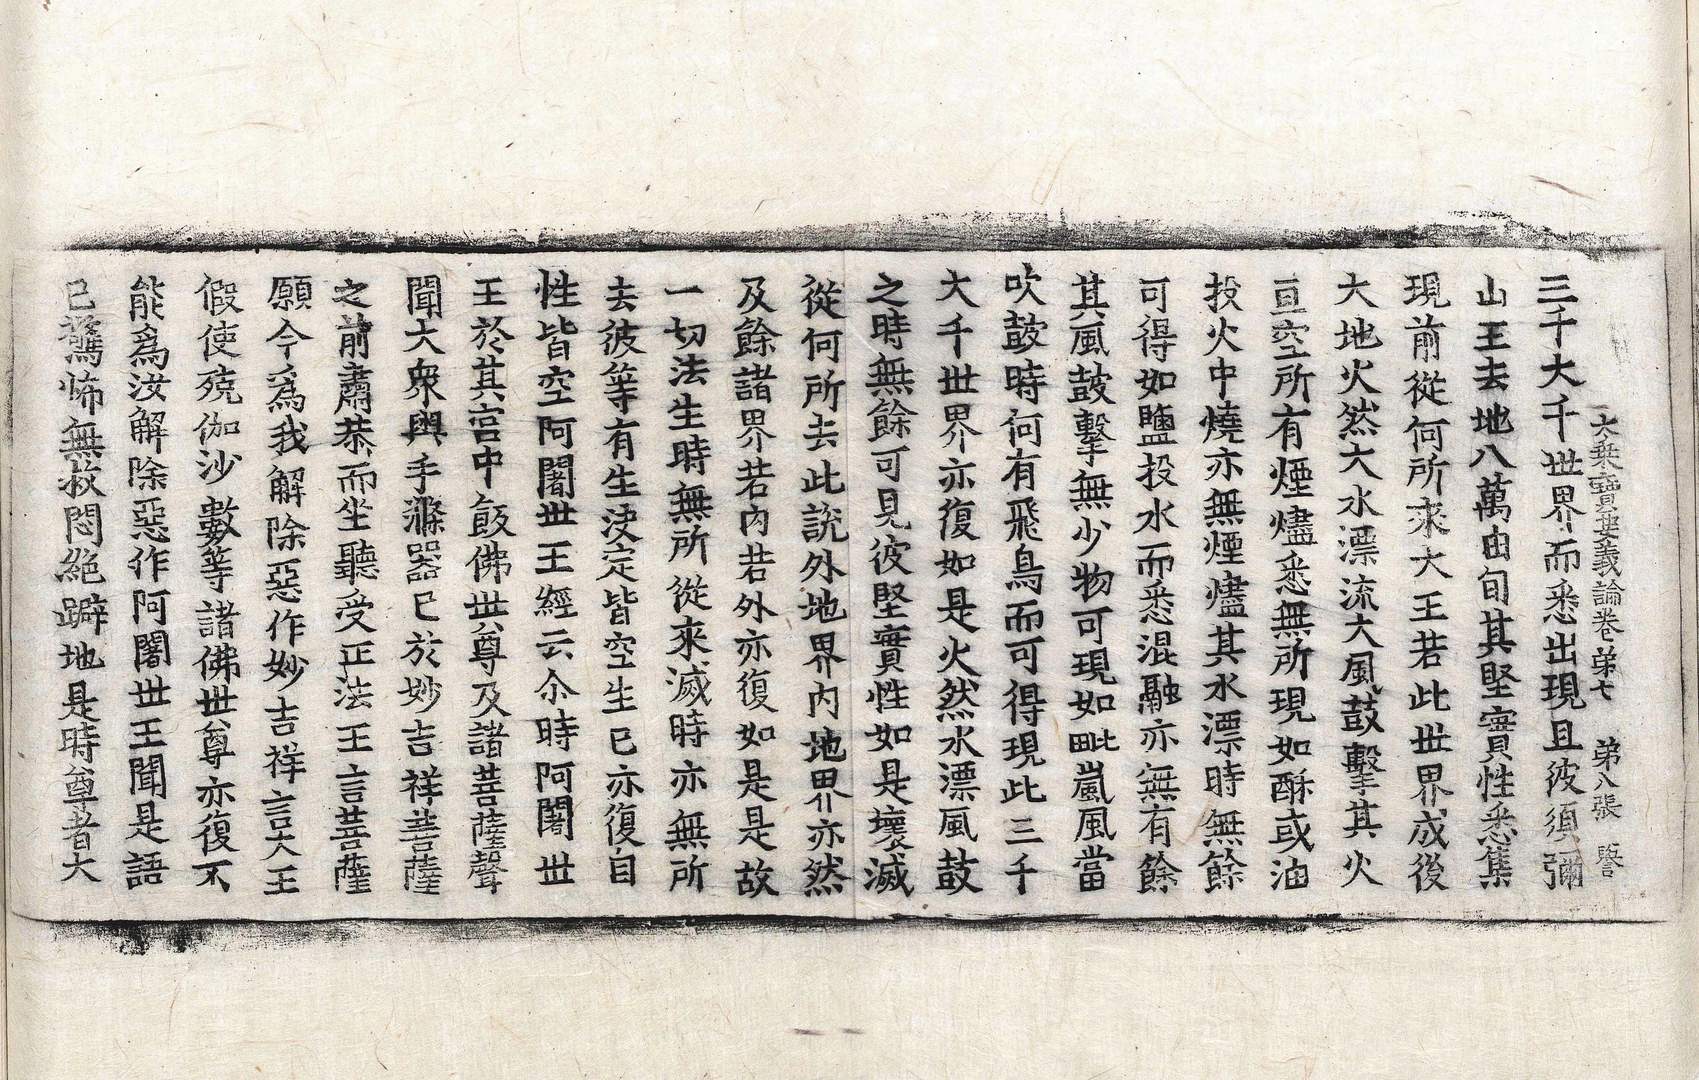 大乗寶要義論卷弟七　弟八張　䀨
三千大千世界而悉出現且彼須彌
山王去地八萬由旬其堅實性悉集
現前從何所來大王若此世界成後
大地火然大水漂流大風鼓擊其火
亘空所有煙燼悉無所現如酥或油
投火中燒亦無煙燼其水漂時無餘
可得如鹽投水而悉混融亦無有餘
其風鼓擊無少物可現如毗嵐風當
吹鼓時何有飛鳥而可得現此三千
大千世界亦復如是火然水漂風鼓
之時無餘可見彼堅實性如是壞滅
從何所去此說外地界內地界亦然
及餘諸界若內若外亦復如是是故
一切法生時無所從來滅時亦無所
去彼等有生決定皆空生已亦復自
性皆空阿闍世王經云尒時阿闍世
王於其宮中飯佛世尊及諸菩薩聲
聞大衆與手滌器已於妙吉祥菩薩
之前肅恭而坐聽受正法王言菩薩
願今爲我解除惡作妙吉祥言大王
假使殑伽沙數等諸佛世尊亦復不
能爲汝解除惡作阿闍世王聞是語
已驚怖無救悶絕躃地是時尊者大